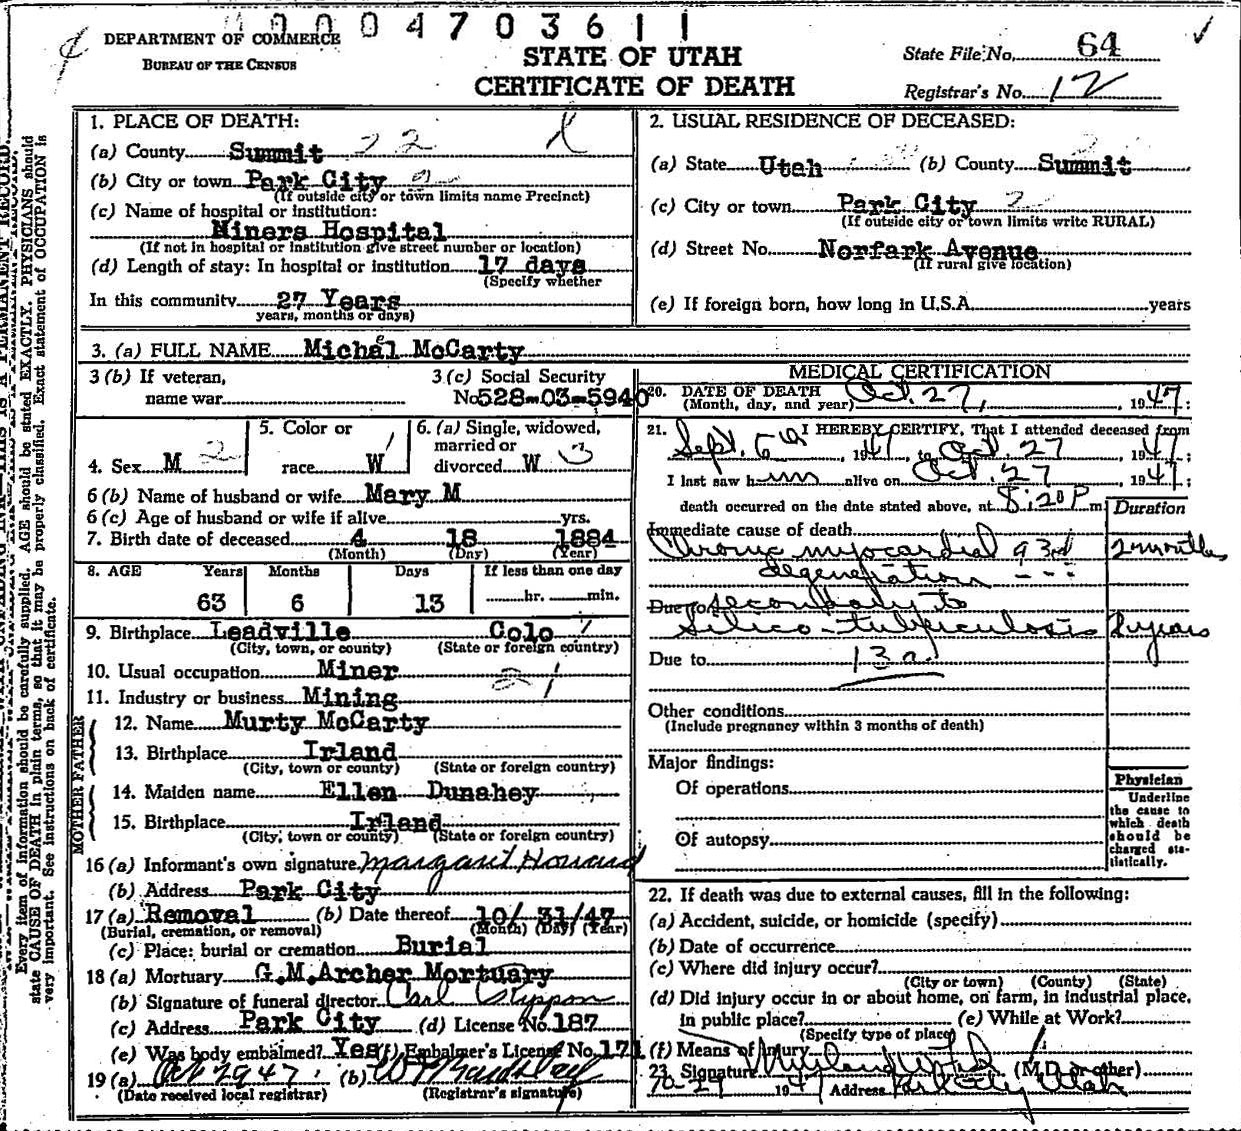 0004703611
DEPARTMENT OF COMMERCE
BUREAU OF THE CENSUS
STATE OF UTAH
CERTIFICATE OF DEATH
State File No. 64
Registrar's No. 12
1. PLACE OF DEATH:
(a) County Summit 22
(b) City or town Park City 2
(If outside city or town limits name Precinct)
(c) Name of hospital or institution:
Miners Hospital
(If not in hospital or institution give street number or location)
(d) Length of stay: In hospital or institution 17 days
(Specify whether
In this community 27 Years
years, months or days)
2. USUAL RESIDENCE OF DECEASED:
(a) State Utah (b) County Summit
(c) City or town Park City 2
(If outside city or town limits write RURAL)
(d) Street No. Norfark Avenue
(If rural give location)
(e) If foreign born, how long in U.S.A. years
3. (a) FULL NAME Michael McCarty
3 (b) If veteran,
name war
3 (c) Social Security
No. 528-03-5940
4. Sex M 2
5. Color or
race W 1
6. (a) Single, widowed,
married or
divorced W 3
6 (b) Name of husband or wife Mary M
6 (c) Age of husband or wife if alive yrs.
7. Birth date of deceased 4 18 1884
(Month) (Day) (Year)
8. AGE Years Months Days If less than one day
63 6 13 hr. min.
9. Birthplace Leadville Colo
(City, town, or county) (State or foreign country)
10. Usual occupation Miner
11. Industry or business Mining
FATHER
12. Name Murty McCarty
13. Birthplace Irland
(City, town or county) (State or foreign country)
MOTHER
14. Maiden name Ellen Dunahey
15. Birthplace Irland
(City, town or county) (State or foreign country)
16 (a) Informant's own signature Margaret Howard
(b) Address Park City
17 (a) Removal (b) Date thereof 10/31/47
(Burial, cremation, or removal) (Month) (Day) (Year)
(c) Place: burial or cremation Burial
18 (a) Mortuary G.M.Archer Mortuary
(b) Signature of funeral director Carl
(c) Address Park City (d) License No. 187
(e) Was body embalmed? Yes (f) Embalmer's License No. 171
19 (a) Oct 29 47 (b)
(Date received local registrar) (Registrar's signature)
MEDICAL CERTIFICATION
20. DATE OF DEATH
(Month, day, and year) Oct. 27, 1947;
21. I HEREBY CERTIFY, That I attended deceased from
Sept. 6th, 1947, to Oct. 27 1947;
I last saw him alive on Oct. 27 1947;
death occurred on the date stated above, at 8:20 P m.
Duration
Immediate cause of death
Chronic myocardial 93d 2 months
degeneration
Due to secondary to
Silico-tuberculosis 2 years
Due to 13a
Other conditions
(Include pregnancy within 3 months of death)
Major findings:
Of operations
Of autopsy
Physician
Underline
the cause to
which death
should be
charged sta-
tistically.
22. If death was due to external causes, fill in the following:
(a) Accident, suicide, or homicide (specify)
(b) Date of occurrence
(c) Where did injury occur?
(City or town) (County) (State)
(d) Did injury occur in or about home, on farm, in industrial place,
in public place? (e) While at Work?
(Specify type of place)
(f) Means of injury
23. Signature (M.D. or other)
10-29 1947 Address Park City Utah
Every item of information should be carefully supplied. AGE should be stated EXACTLY. PHYSICIANS should
state CAUSE OF DEATH in plain terms, so that it may be properly classified. Exact statement of OCCUPATION is
very important. See instructions on back of certificate.